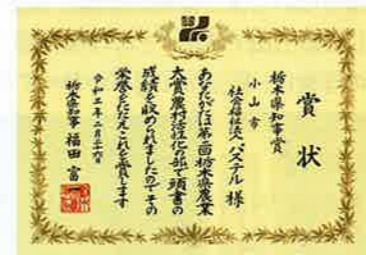 賞状
栃木県知事賞
小山市
社会福祉法人パステル 様
あなたがたは第二回栃木県農業
大賞農村活性化の部で頭書の
成績を収められましたのでその
栄誉をたたえこれを賞します
令和三年二月二十六日
栃木県知事 福田富一